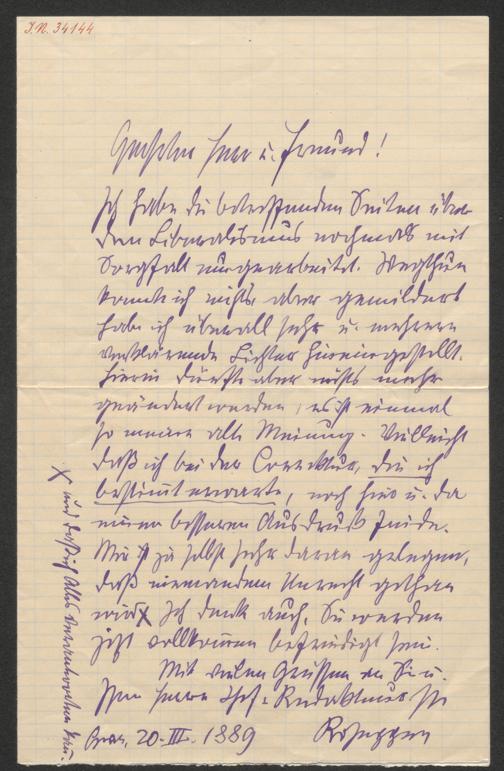 J.N. 34144
Geehrter Herr u. Freund!
Ich habe die betreffenden Seiten über
den Liberalismus nochmals mit
Sorgfalt umgearbeitet. Wegthun
konnte ich nichts, aber gemildert
habe ich überall sehr u. mehrere
verklärende Lichter hineingestellt.
Hierin dürfte aber nichts mehr
geändert werden, es ist einmal
so meine alte Meinung. Vielleicht
daß ich bei der Correktur, die ich
bestimt erwarte, noch hier u. da
einen besseren Ausdruck finde.
Mir ist ja selbst sehr daran gelegen,
daß niemandem Unrecht gethan
wird X Ich denke auch, Sie werden
jetzt vollkommen befriedigt sein.
Mit vielen Grüssen an Sie u.
Herrn Chef-Redakteur Ihr
Graz, 20. III. 1889 Rosegger
X und daß ich Alles verantworten kan.